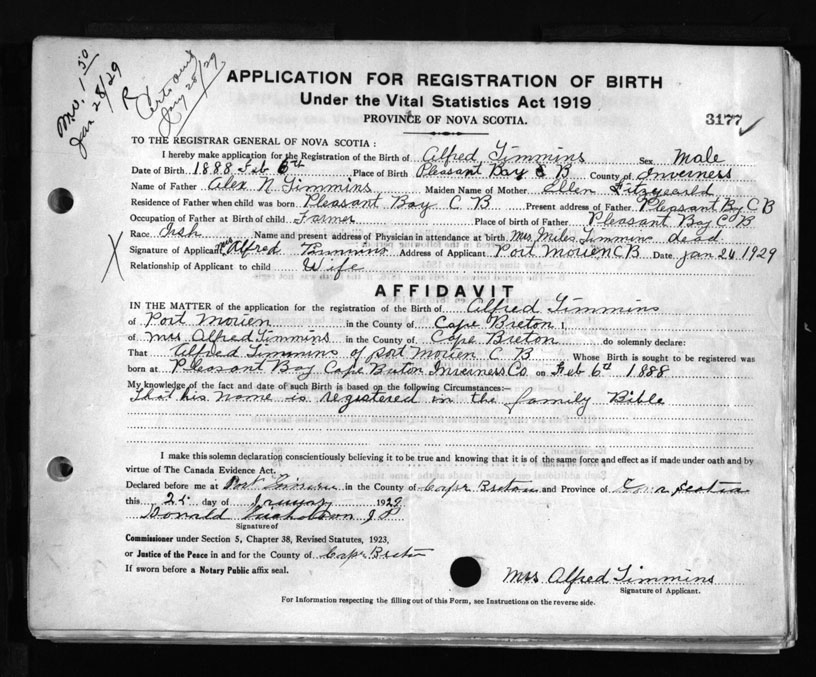 Mrs. 1.50
Jan 28/29
Jan 28/29
APPLICATION FOR REGISTRATION OF BIRTH
Under the Vital Statistics Act 1919
PROVINCE OF NOVA SCOTIA.
3177 ✓
TO THE REGISTRAR GENERAL OF NOVA SCOTIA :
I hereby make application for the Registration of the Birth of Alfred Timmins Sex Male
Date of Birth 1888 Feb 6th Place of Birth Pleasant Bay C B County of Inverness
Name of Father Alex N. Timmins Maiden Name of Mother Ellen Fitzgearld
Residence of Father when child was born Pleasant Bay C B Present address of Father Pleasant By C B
Occupation of Father at Birth of child Farmer Place of birth of Father Pleasant Bay C B
Race Irsh Name and present address of Physician in attendance at birth Mrs Miles Timmins dead
X Signature of Applicant Mrs Alfred Timmins Address of Applicant Port Morien C B Date Jan 24 1929
Relationship of Applicant to child Wife
AFFIDAVIT
IN THE MATTER of the application for the registration of the Birth of Alfred Timmins
of Port Morien in the County of Cape Breton I,
of Mrs Alfred Timmins in the County of Cape Breton do solemnly declare:
That Alfred Timmins of port Morien C B Whose Birth is sought to be registered was
born at Pleasant Bay Cape Breton Inverness Co on Feb 6th 1888
My knowledge of the fact and date of such Birth is based on the following Circumstances:—
That his name is registered in the family Bible
I make this solemn declaration conscientiously believing it to be true and knowing that it is of the same force and effect as if made under oath and by
virtue of The Canada Evidence Act.
Declared before me at Port Morien in the County of Cape Breton and Province of Nova Scotia
this 25 day of January 1929
Donald Nicholson J P
Signature of
Commissioner under Section 5, Chapter 38, Revised Statutes, 1923,
or Justice of the Peace in and for the County of Cape Breton
If sworn before a Notary Public affix seal.
Mrs Alfred Timmins
Signature of Applicant.
For Information respecting the filling out of this Form, see Instructions on the reverse side.